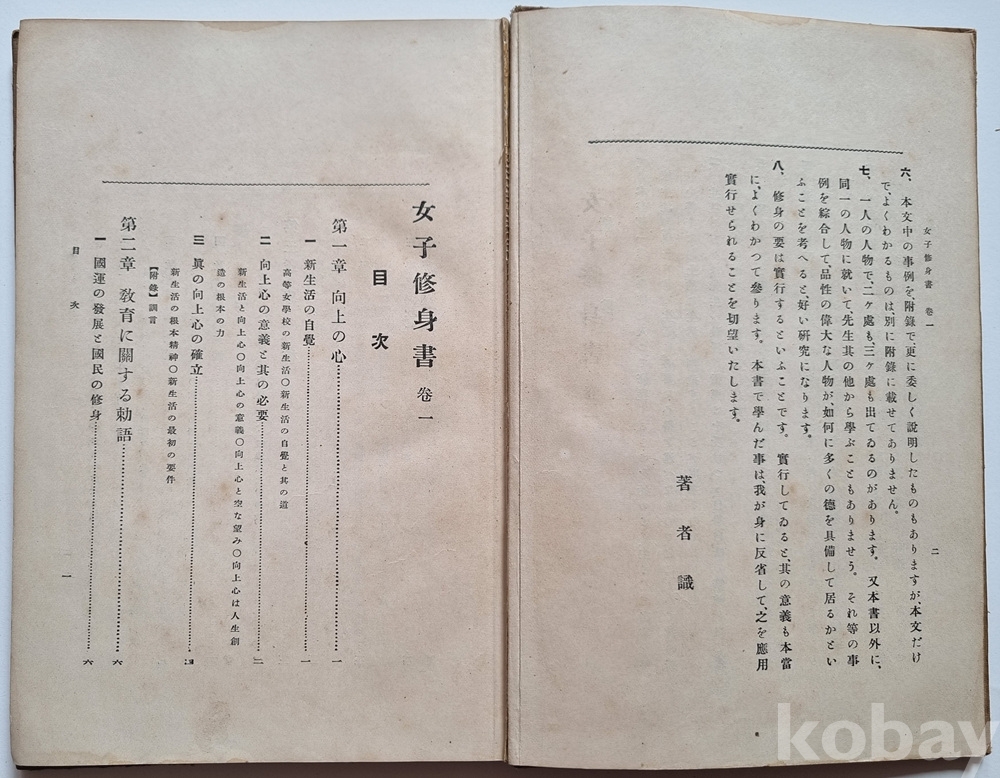 女子修身書 卷一
二
六、本文中の事例を附錄で、更に委しく說明したものもありますが本文だけ
で、よくわかるものは別に附錄に載せてありません。
七、一人の人物で、二ヶ處も、三ヶ處も出てゐるのがあります。又本書以外に、
同一の人物に就いて、先生其の他から學ぶこともありませう。それ等の事
例を綜合して、品性の偉大な人物が、如何に多くの德を具備して居るかとい
ふことを考へると、好い硏究になります。
八、修身の要は實行するといふことです。實行してゐると、其の意義も本當
に、よくわかつて參ります。本書で學んだ事は我が身に反省して、之を應用
實行せられることを切望いたします。
著者識
女子修身書 卷一
目次
第一章 向上の心……一
一 新生活の自覺……一
高等女學校の新生活〇新生活の自覺と其の道
二 向上心の意義と其の必要……二
新生活と向上心〇向上心の意義〇向上心と空な望み〇向上心は人生創
造の根本の力
三 眞の向上心の確立……四
新生活の根本精神〇新生活の最初の要件
【附錄】訓言
第二章 敎育に關する勅語……六
一 國運の發展と國民の修身……六
目次
一
kobay